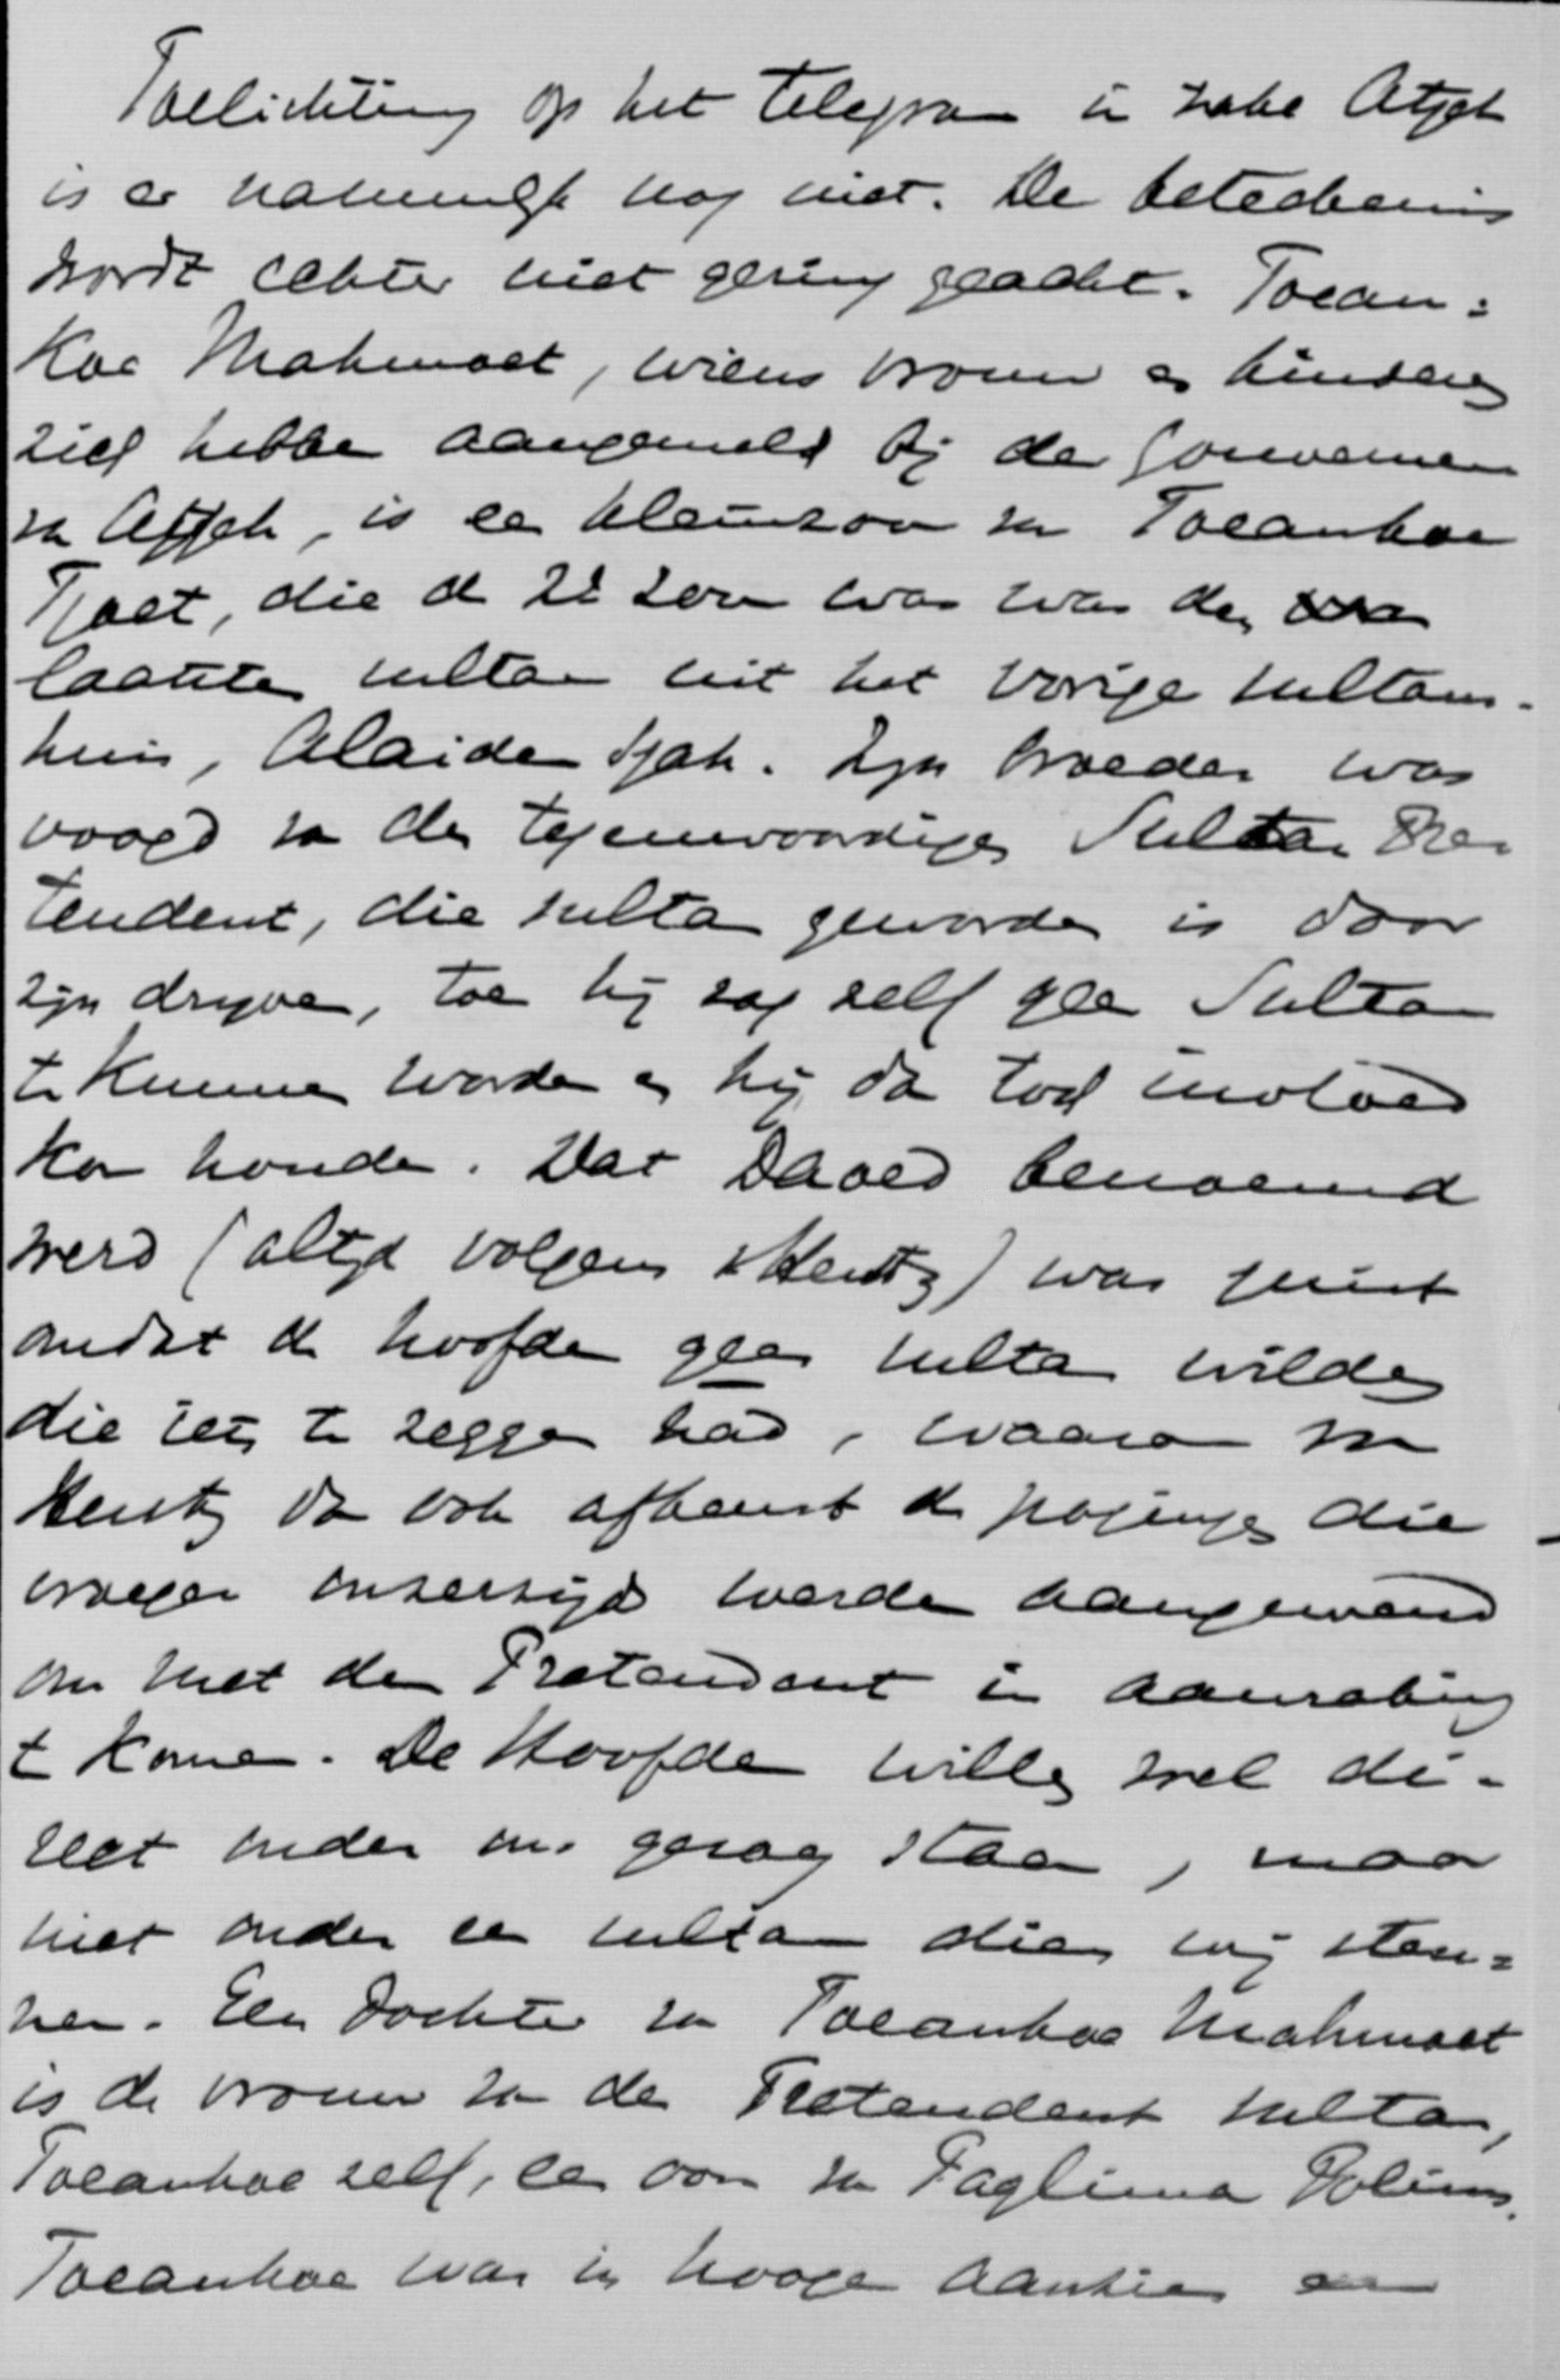 Toelichting op het telegram in zake Atjeh
is er natuurlijk nog niet. De beteekenis
wordt echter niet gering geacht. Toean=
koe Mahmoet, wiens vrouw en kinderen
zich hebben aangemeld bij den Gouverneur
van Atjeh, is een kleinzoon van Toeankoe
Tjoet, die de 2e zoon was van den
laatsten sultan uit het vorige sultans-
huis, Alaidin Sjah. Zijn broeder was
voogd van den tegenwoordigen Sultan Pre
tendent, die sultan geworden is door
zijn drijven, toen hij zag zelf geen Sultan
te kunnen worden en hij dan toch invloed
kon houden. Dat Daoed benoemd
werd (altijd volgens v Heutsz) was juist
omdat de hoofden geen sultan wilden
die iets te zeggen had, waarom van
Heutsz dan ook afkeurt de pogingen die
vroeger onzerzijds werden aangewend
om met den Pretendent in aanraking
te komen. De Hoofden willen wel di-
rect onder ons gezag staan, maar
niet onder een sultan dien wij steu=
nen. Een dochter van Toeankoe Mahmoet
is de vrouw van den Pretendent sultan,
Toeankoe zelf, een oom van Paglima Polim.
Toeankoe was in hooge aanzien en